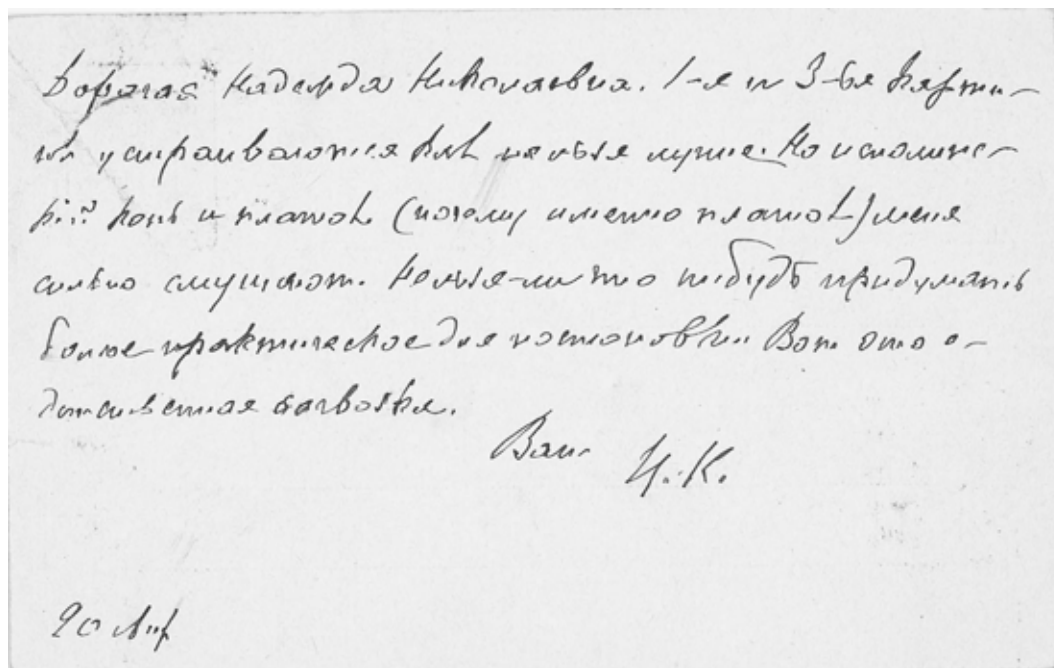 Дорогая Надежда Николаевна. 1-я и 3-ья карти-
ны устраиваются как нельзя лучше. Но исполинс-
кій конь и платок (почему именно платок) меня
сильно смущают. Нельзя-ли что нибудь придумать
более практическое для постановки Вот это е-
динственная загвоздка.
Ваш Ц. К.